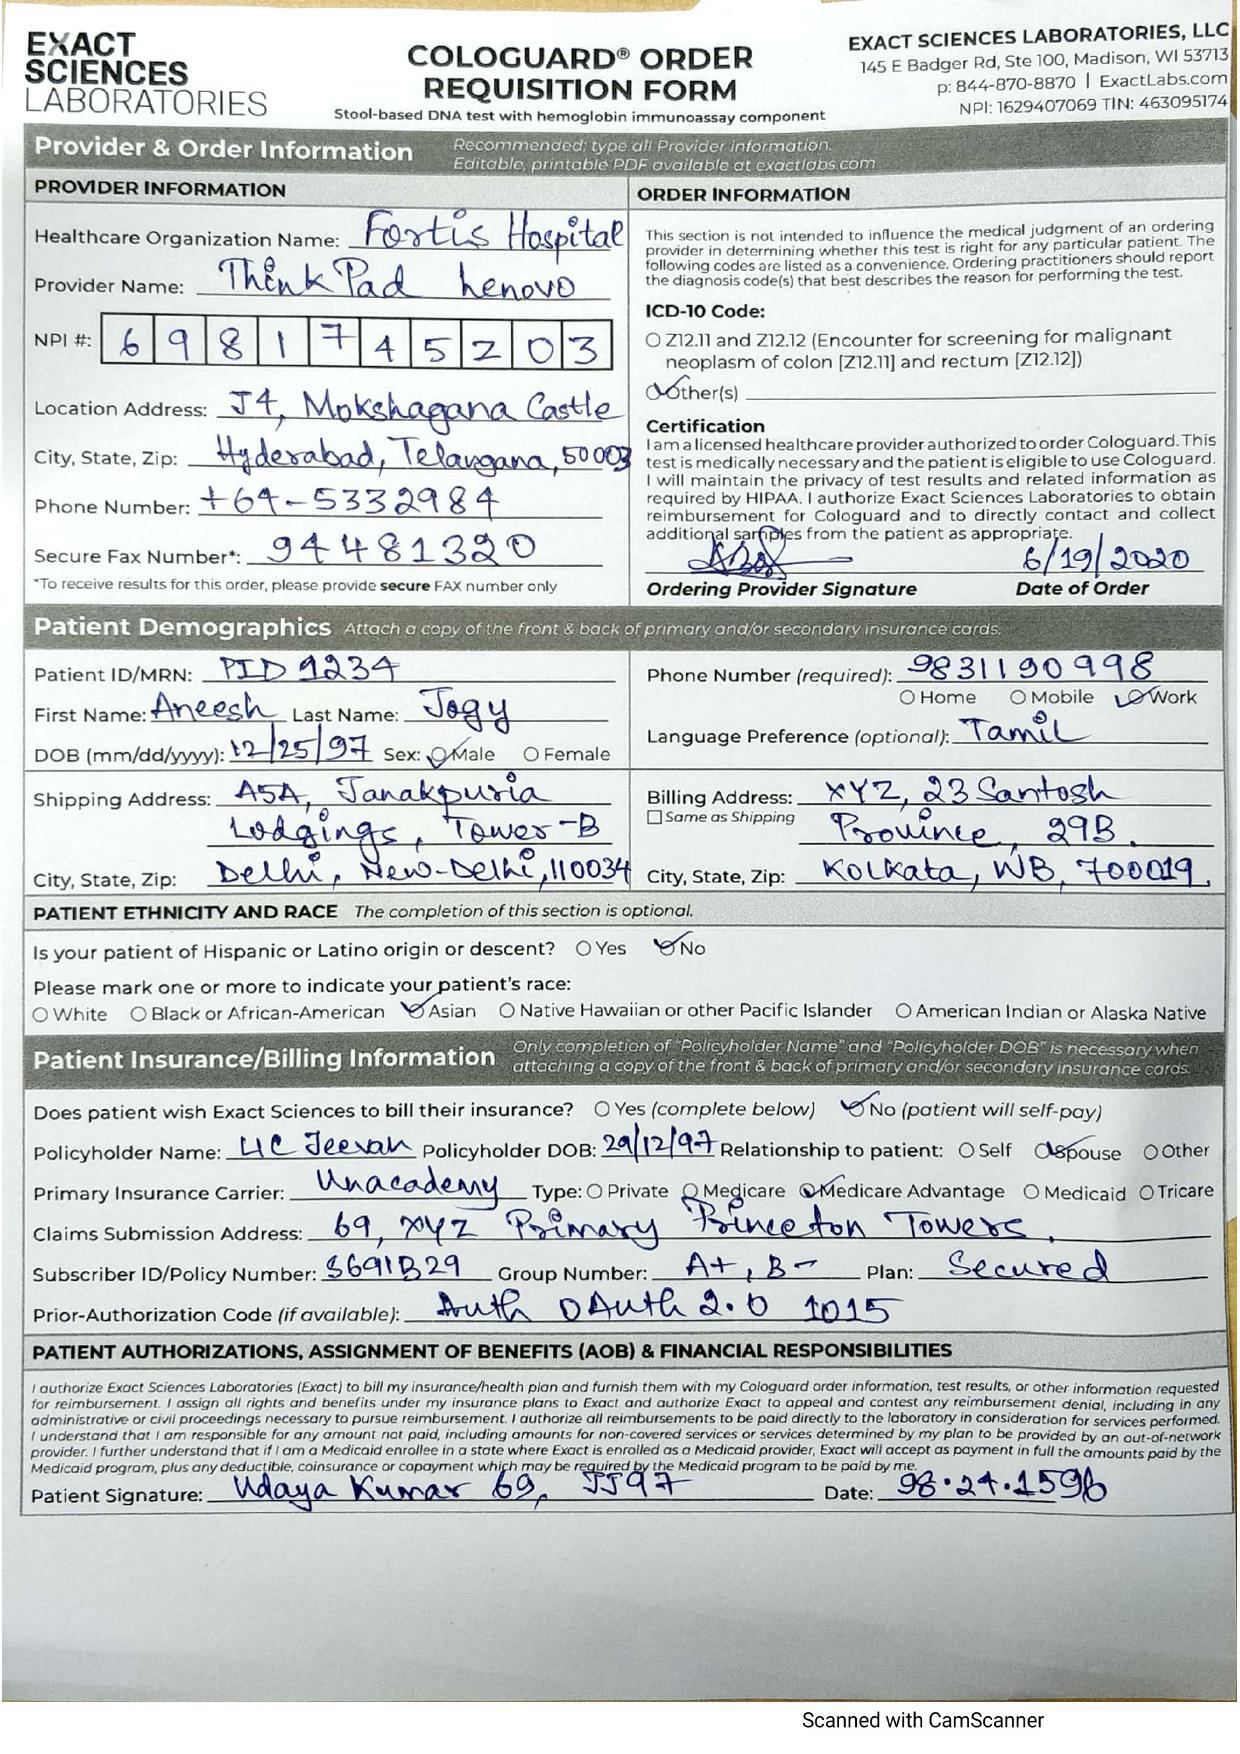 EXACT
SCIENCES
LABORATORIES
COLOGUARD® ORDER
REQUISITION FORM
Stool-based DNA test with hemoglobin immunoassay component
EXACT SCIENCES LABORATORIES, LLC
145 E Badger Rd, Ste 100, Madison, WI 53713
p: 844-870-8870 | ExactLabs.com
NPI: 1629407069 TIN: 463095174
Provider & Order Information Recommended: type all Provider information.
Editable, printable PDF available at exactlabs.com
PROVIDER INFORMATION
Healthcare Organization Name: Fortis Hospital
Provider Name: ThinkPad Lenovo
NPI #: 6 9 8 1 7 4 5 2 0 3
Location Address: J4, Mokshagana Castle
City, State, Zip: Hyderabad, Telangana, 50003
Phone Number: +64-5332984
Secure Fax Number*: 94481320
*To receive results for this order, please provide secure FAX number only
ORDER INFORMATION
This section is not intended to influence the medical judgment of an ordering
provider in determining whether this test is right for any particular patient. The
following codes are listed as a convenience. Ordering practitioners should report
the diagnosis code(s) that best describes the reason for performing the test.
ICD-10 Code:
Z12.11 and Z12.12 (Encounter for screening for malignant
neoplasm of colon [Z12.11] and rectum [Z12.12])
Other(s)
Certification
I am a licensed healthcare provider authorized to order Cologuard. This
test is medically necessary and the patient is eligible to use Cologuard.
I will maintain the privacy of test results and related information as
required by HIPAA. I authorize Exact Sciences Laboratories to obtain
reimbursement for Cologuard and to directly contact and collect
additional samples from the patient as appropriate.
6/19/2020
Ordering Provider Signature Date of Order
Patient Demographics Attach a copy of the front & back of primary and/or secondary insurance cards.
Patient ID/MRN: PID 1234
First Name: Aneesh Last Name: Jogy
DOB (mm/dd/yyyy): 12/25/97 Sex: Male Female
Phone Number (required): 9831190998
Home Mobile Work
Language Preference (optional): Tamil
Shipping Address: A5A, Janakpuria
Lodgings, Tower-B
City, State, Zip: Delhi, New-Delhi, 110034
Billing Address: XYZ, 23 Santosh
Same as Shipping
Province, 29B.
City, State, Zip: Kolkata, WB, 700019.
PATIENT ETHNICITY AND RACE The completion of this section is optional.
Is your patient of Hispanic or Latino origin or descent? Yes No
Please mark one or more to indicate your patient's race:
White Black or African-American Asian Native Hawaiian or other Pacific Islander American Indian or Alaska Native
Patient Insurance/Billing Information Only completion of "Policyholder Name" and "Policyholder DOB" is necessary when
attaching a copy of the front & back of primary and/or secondary insurance cards.
Does patient wish Exact Sciences to bill their insurance? Yes (complete below) No (patient will self-pay)
Policyholder Name: LIC Jeevan Policyholder DOB: 29/12/97 Relationship to patient: Self Spouse Other
Primary Insurance Carrier: Unacademy Type: Private Medicare Medicare Advantage Medicaid Tricare
Claims Submission Address: 69, XYZ Primary Princeton Towers.
Subscriber ID/Policy Number: S691B29 Group Number: A+, B- Plan: Secured
Prior-Authorization Code (if available): Auth OAuth 2.0 1015
PATIENT AUTHORIZATIONS, ASSIGNMENT OF BENEFITS (AOB) & FINANCIAL RESPONSIBILITIES
I authorize Exact Sciences Laboratories (Exact) to bill my insurance/health plan and furnish them with my Cologuard order information, test results, or other information requested
for reimbursement. I assign all rights and benefits under my insurance plans to Exact and authorize Exact to appeal and contest any reimbursement denial, including in any
administrative or civil proceedings necessary to pursue reimbursement. I authorize all reimbursements to be paid directly to the laboratory in consideration for services performed.
I understand that I am responsible for any amount not paid, including amounts for non-covered services or services determined by my plan to be provided by an out-of-network
provider. I further understand that if I am a Medicaid enrollee in a state where Exact is enrolled as a Medicaid provider, Exact will accept as payment in full the amounts paid by the
Medicaid program, plus any deductible, coinsurance or copayment which may be required by the Medicaid program to be paid by me.
Patient Signature: Udaya Kumar 69, JJ97 Date: 98.24.1596
Scanned with CamScanner